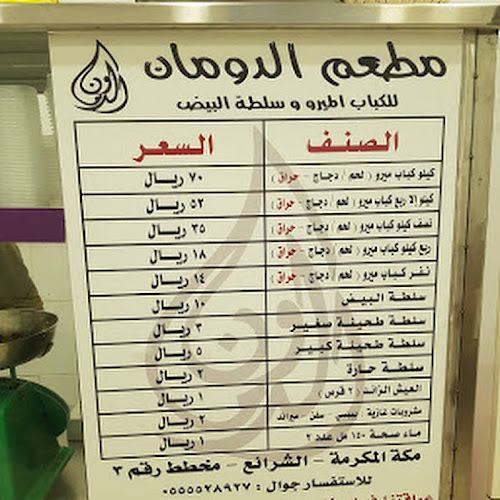 مطعم الدومان
للكباب الميرو و سلطة البيض
الصنف السعر
كيلو كباب ميرو ( لحم / دجاج - حراق ) ٧٠ ريال
كيلو إلا ربع كباب ميرو ( لحم / دجاج - حراق ) ٥٢ ريال
نصف كيلو كباب ميرو ( لحم / دجاج - حراق ) ٣٥ ريال
ربع كيلو كباب ميرو ( لحم / دجاج - حراق ) ١٨ ريال
نفر كباب ميرو ( لحم / دجاج - حراق ) ١٤ ريال
سلطة البيض ١٠ ريال
سلطة طحينة صغير ٣ ريال
سلطة طحينة كبير ٥ ريال
سلطة حارة ٢ ريال
العيش الزائد ( ٢ قرص ) ١ ريال
مشروبات غازية : بيبسي - سفن - ميراندا ٢ ريال
ماء صحة ١٤٠ مل عدد ٢ ١ ريال
مكة المكرمة - الشرائع - مخطط رقم ٣
للاستفسار جوال : ٠٥٥٥٥٢٨٩٢٧